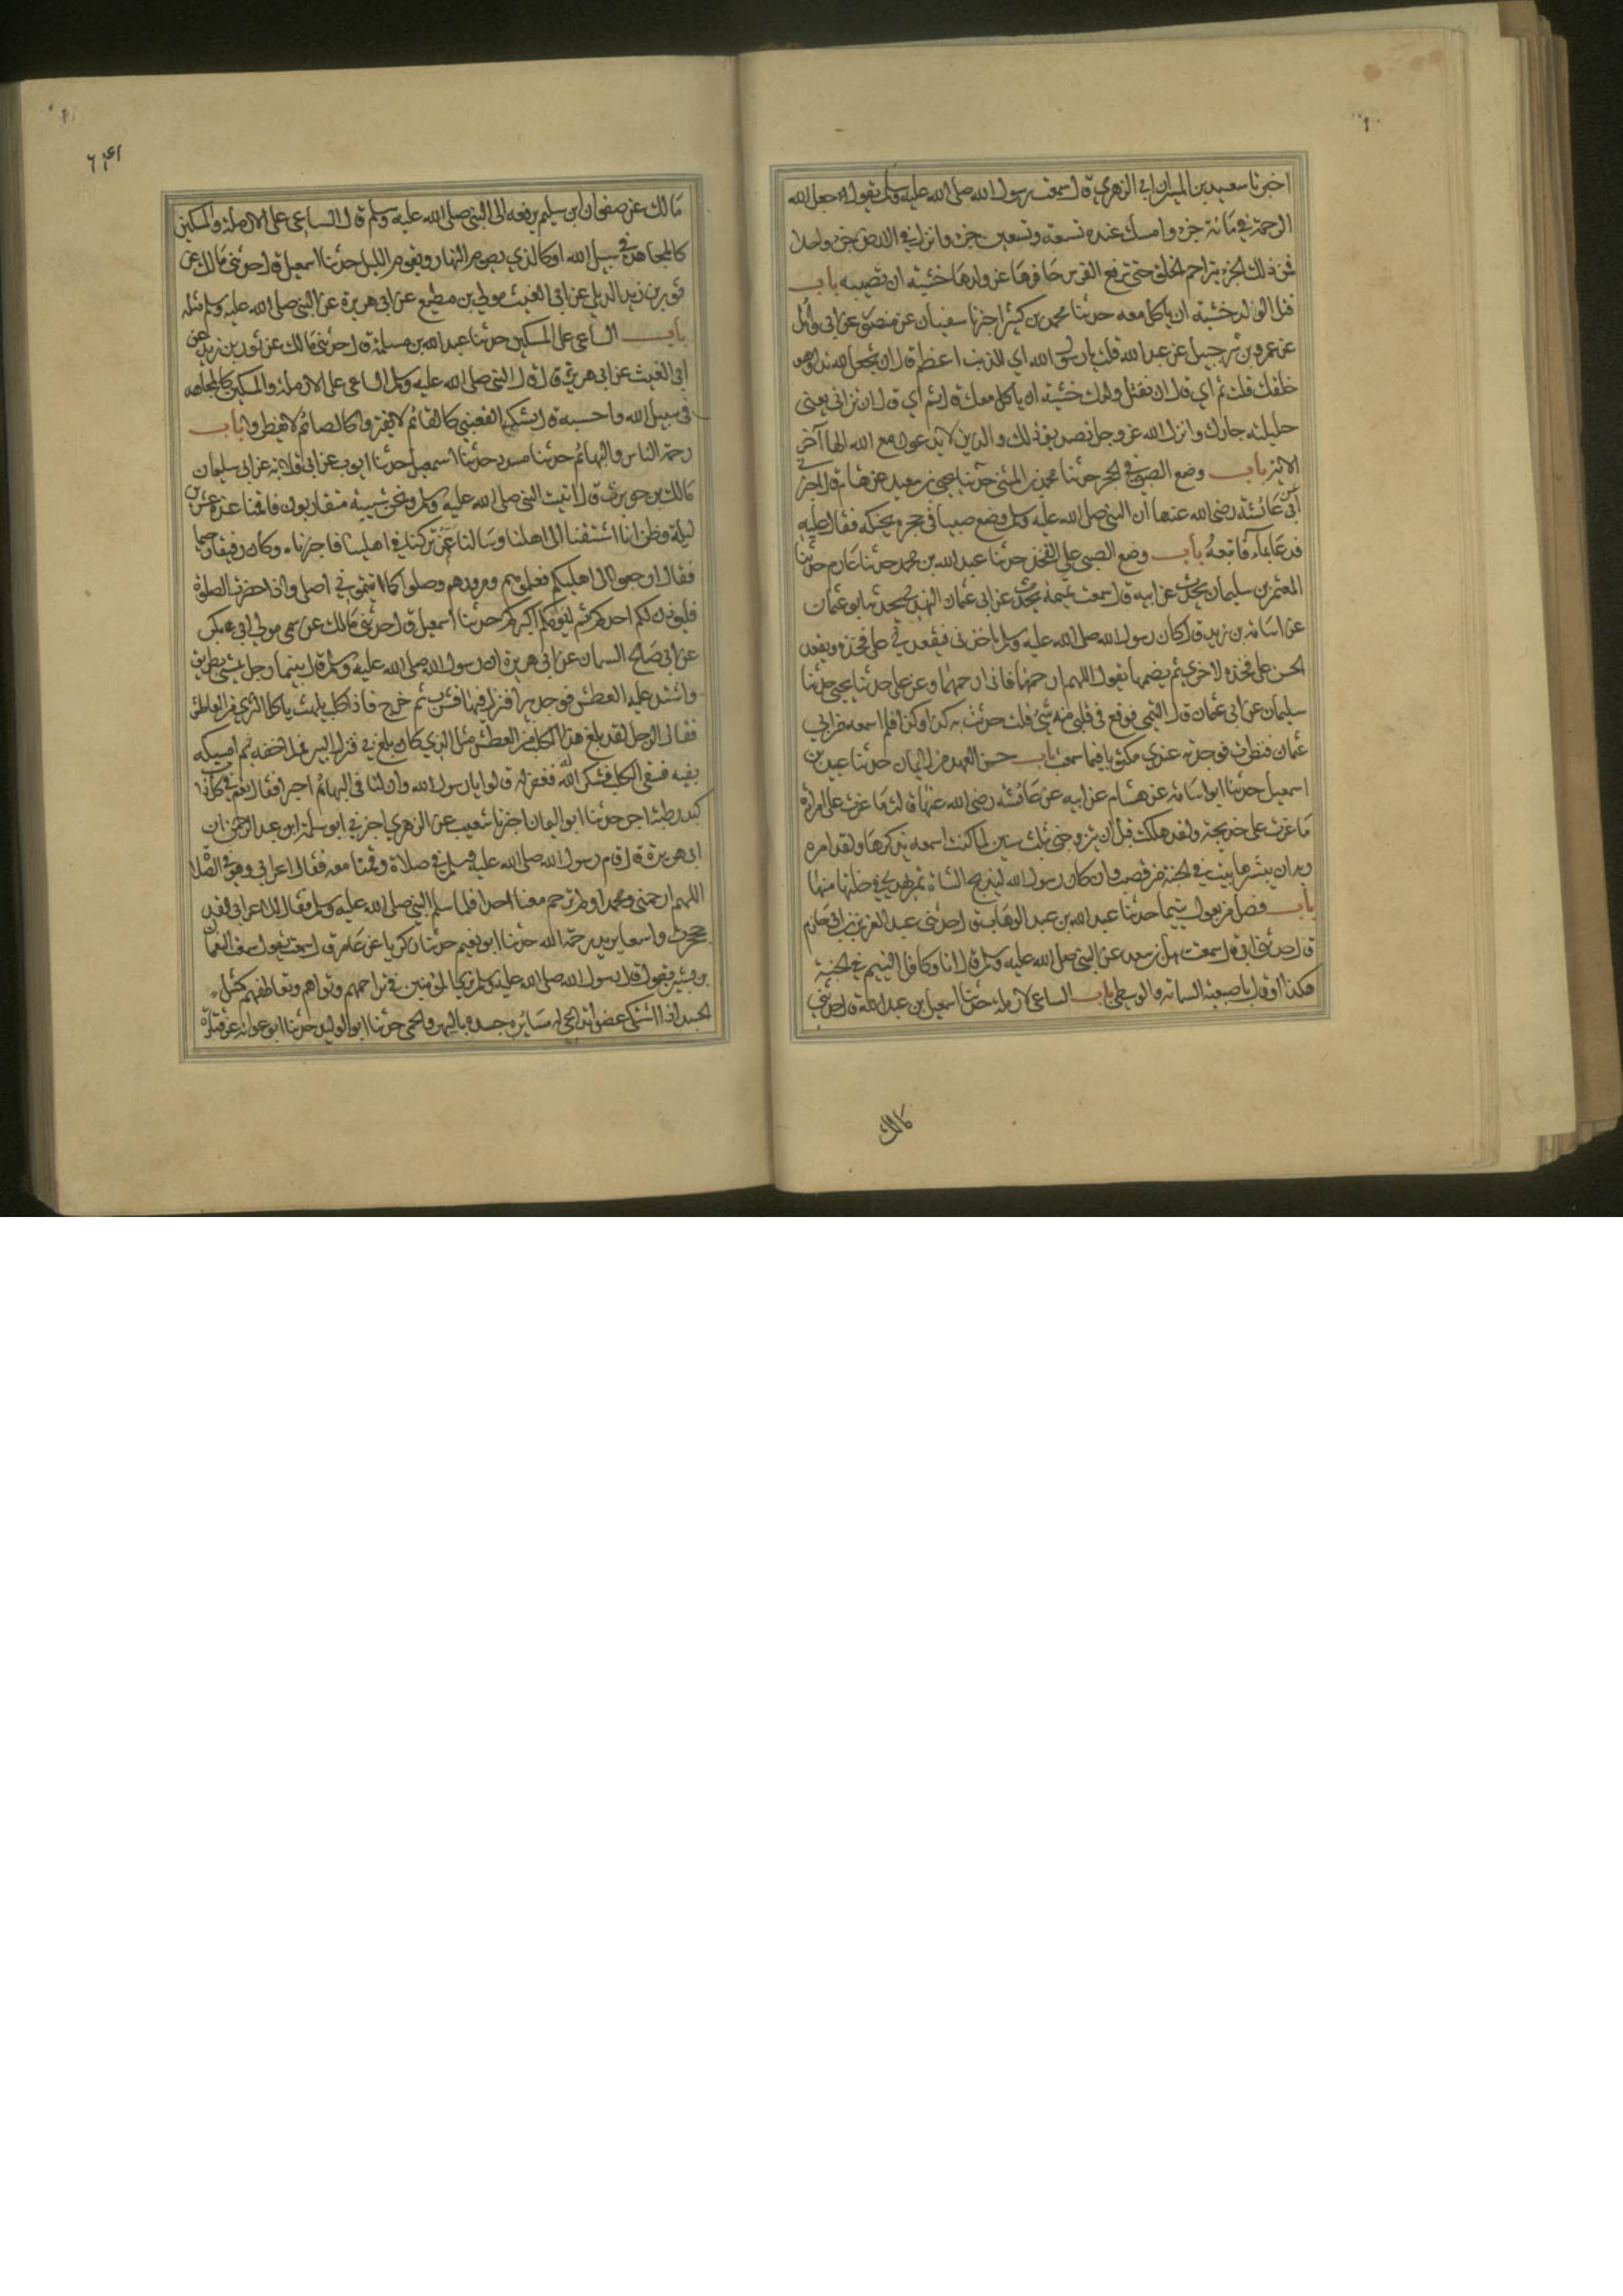 اخبرنا سعيد بن المسيب ان ابي الزهري قال سمعت رسول الله صلى الله عليه وسلم يقول جعل الله
الرحمة في مائة جزء وامسك عنده تسعة وتسعين جزء وانزل في الارض جزء واحدا
فمن ذلك الجزء يتراحم الخلق حتى ترفع الفرس حافرها عن ولدها خشية ان تصيبه باب
قتل الولد خشية ان ياكل معه حدثنا محمد بن كثير اخبرنا سفيان عن منصور عن ابي وائل
عن عمرو بن شرحبيل عن عبد الله قلت يا رسول الله اي الذنب اعظم قال ان تجعل لله ندا وهو
خلقك قلت ثم اي قال ان تقتل ولدك خشية ان ياكل معك قال ثم اي قال ان تزاني يعني
حليلة جارك وانزل الله عز وجل تصديق ذلك والذين لا يدعون مع الله الها آخر
الاية باب وضع الصبي في الحجر حدثنا محمد بن المثنى حدثنا يحيى بن سعيد عن هشام قال اخبرني
ابي عن عائشة رضى الله عنها ان النبي صلى الله عليه وسلم وضع صبيا في حجره يحنكه فبال عليه
فدعا بماء فاتبعه باب وضع الصبي على الفخذ حدثنا عبد الله بن محمد حدثنا عارم حدثنا
المعتمر بن سليمان يحدث عن ابيه قال سمعت تميمة يحدث عن ابي عثمان النهدي يحدثه ابو عثمان
عن اسامة بن زيد قال كان رسول الله صلى الله عليه وسلم ياخذني فيقعدني على فخذه ويقعد
الحسن على فخذه الاخرى ثم يضمهما يقول اللهم ارحمهما فاني ارحمهما وعن على حدثنا يحيى حدثنا
سليمان عن ابي عثمان قال التيمي فوقع في قلبي منه شئ قلت حدثت به كذا وكذا فلم اسمعه من ابي
عثمان فنظرت فوجدته عندي مكتوبا فيما سمعت باب حسن العهد من الايمان حدثنا عبيد بن
اسمعيل حدثنا ابو اسامة عن هشام عن ابيه عن عائشة رضى الله عنها قالت ما غرت على امراة
ما غرت على خديجة ولقد هلكت قبل ان يتزوجني بثلث سنين لما كنت اسمعه يذكرها ولقد امره
ربه ان يبشرها ببيت في الجنة من قصب وان كان رسول الله ليذبح الشاة ثم يهدي في خلتها منها
باب فضل من يعول يتيما حدثنا عبد الله بن عبد الوهاب قال حدثني عبد العزيز بن ابي حازم
قال حدثني ابي قال سمعت سهل بن سعد عن النبي صلى الله عليه وسلم قال انا وكافل اليتيم في الجنة
هكذا وقال باصبعيه السبابة والوسطى باب الساعي الارملة حدثنا اسمعيل بن عبد الله قال حدثني
مالك
مالك عن صفوان ابن سليم يرفعه الى النبي صلى الله عليه وسلم قال الساعي على الارملة والمسكين
كالمجاهد في سبيل الله او كالذي يصوم النهار ويقوم الليل حدثنا اسمعيل قال حدثني مالك عن
ثور بن زيد الديلي عن ابي الغيث مولى بن مطيع عن ابي هريرة عن النبي صلى الله عليه وسلم مثله
باب الساعي على المسكين حدثنا عبد الله بن مسلمة قال حدثني مالك عن ثور بن زيد عن
ابي الغيث عن ابي هريرة قال قال النبي صلى الله عليه وسلم الساعي على الارملة والمسكين كالمجاهد
في سبيل الله واحسبه قال يشك القعنبي كالقائم لا يفتر وكالصائم لا يفطر باب
رحمة الناس والبهائم حدثنا مسدد حدثنا اسمعيل حدثنا ايوب عن ابي قلابة عن ابي سليمان
مالك بن حويرث قال اتيت النبي صلى الله عليه وسلم ونحن شببة متقاربون فاقمنا عنده عشرين
ليلة وظن انا اشتقنا الى اهلنا وسالنا عمن تركنا في اهلينا فاخبرناه وكان رفيقا رحيما
فقال ارجعوا الى اهليكم فعلموهم ومروهم وصلوا كما رايتموني اصلي واذا حضرت الصلوة
فليؤذن لكم احدكم ثم ليؤمكم اكبركم حدثنا اسمعيل قال حدثني مالك عن سمي مولى ابي بكر
عن ابي صالح السمان عن ابي هريرة ان رسول الله صلى الله عليه وسلم قال بينما رجل يمشي بطريق
واشتد عليه العطش فوجد بيرا فنزل فيها فشرب ثم خرج فاذا كلب يلهث ياكل الثرى من العطش
فقال الرجل لقد بلغ هذا الكلب من العطش مثل الذي كان بلغ بي فنزل البير فملا خفه ثم امسكه
بفيه فسقى الكلب فشكر الله فغفر له قالوا يا رسول الله وان لنا في البهائم اجرا فقال نعم في كل ذات
كبد رطبة اجر حدثنا ابو اليمان اخبرنا شعيب عن الزهري اخبرني ابو سلمة ابن عبد الرحمن ان
ابي هريرة قال قام رسول الله صلى الله عليه وسلم في صلاة وقمنا معه فقال اعرابي وهو في الصلاة
اللهم ارحمني ومحمدا ولا ترحم معنا احدا فلما سلم النبي صلى الله عليه وسلم قال للاعرابي لقد
حجرت واسعا يريد رحمة الله حدثنا ابو نعيم حدثنا زكريا عن عامر قال سمعته يقول سمعت النعمان
بن بشير يقول قال رسول الله صلى الله عليه وسلم ترى المؤمنين في تراحمهم وتوادهم وتعاطفهم كمثل
الجسد اذا اشتكى عضوا تداعى له سائر جسده بالسهر والحمى حدثنا ابو الوليد حدثنا ابو عوانة عن قتادة